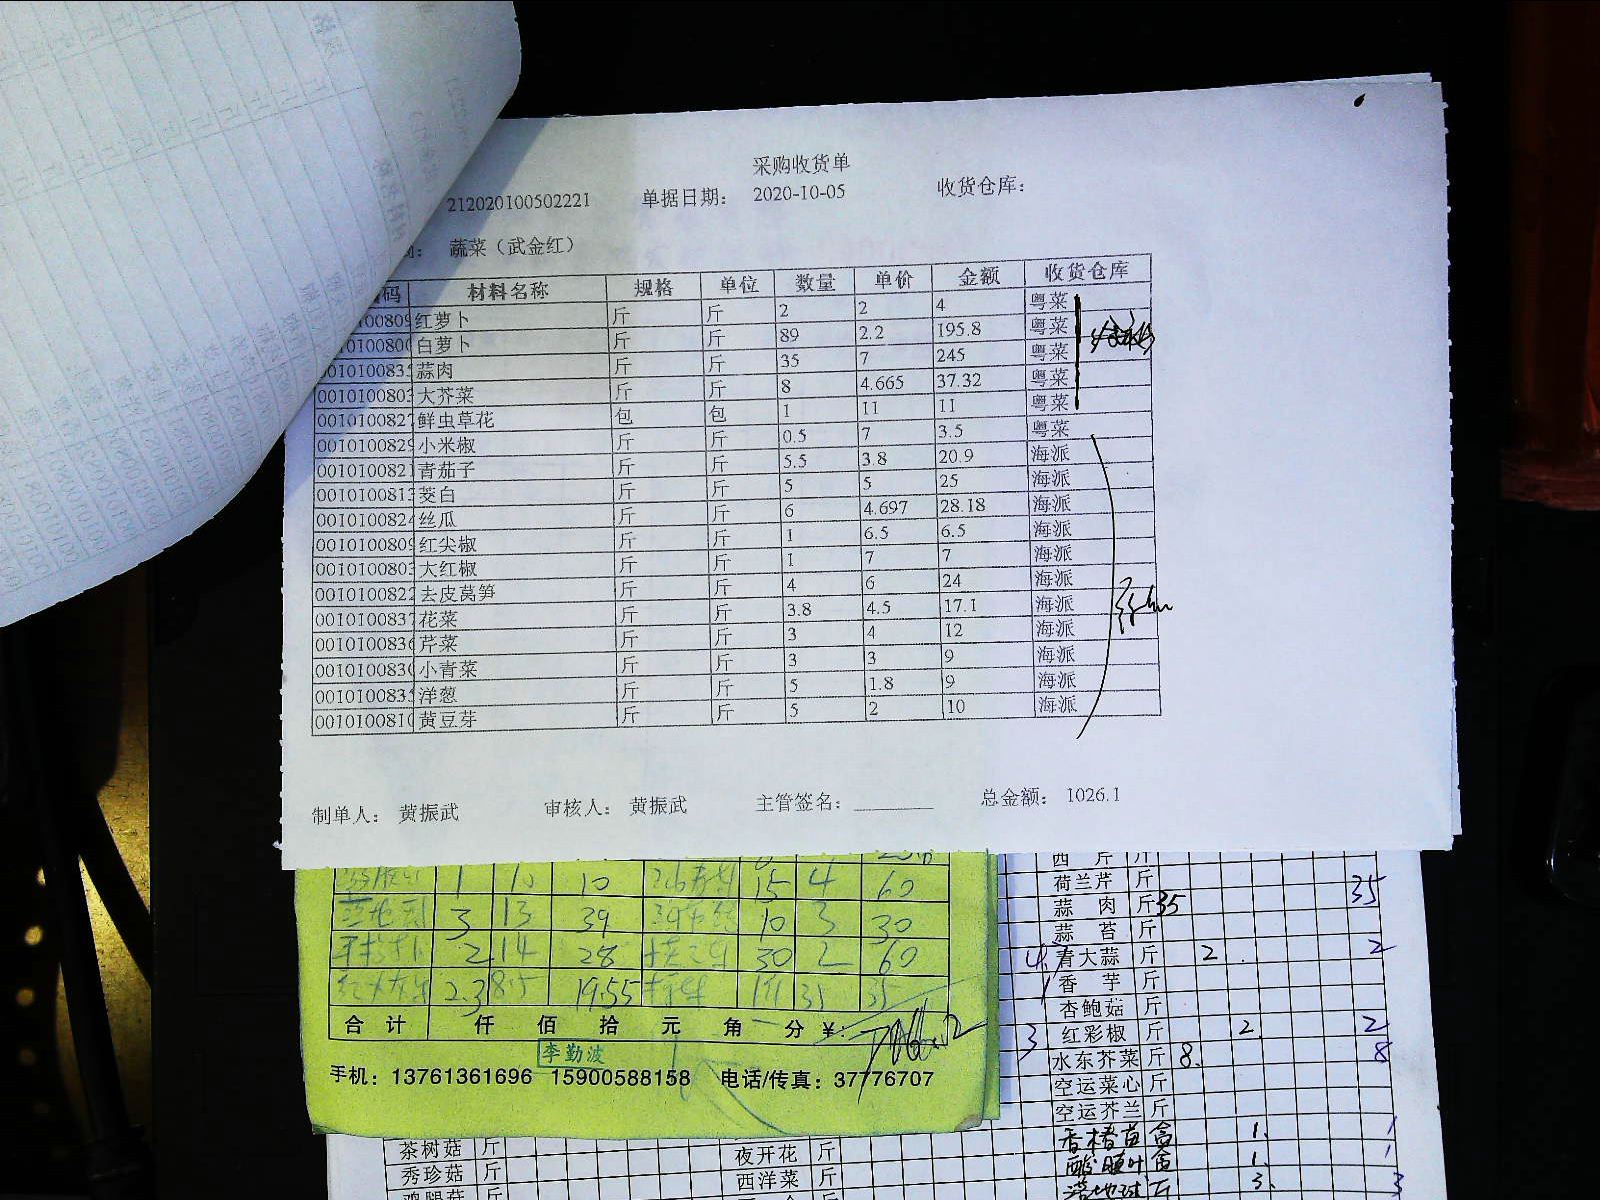 采购收货单
212020100502221 单据日期： 2020-10-05 收货仓库：
蔬菜（武金红）
码 材料名称 规格 单位 数量 单价 金额 收货仓库
红萝卜 斤 斤 2 2 4 粤菜
白萝卜 斤 斤 89 2.2 195.8 粤菜
蒜肉 斤 斤 35 7 245 粤菜
0010100803 大芥菜 斤 斤 8 4.665 37.32 粤菜
001010082 鲜虫草花 包 包 1 11 11 粤菜
001010082 小米椒 斤 斤 0.5 7 3.5 粤菜
001010082 青茄子 斤 斤 5.5 3.8 20.9 海派
001010081 茭白 斤 斤 5 5 25 海派
001010082 丝瓜 斤 斤 6 4.697 28.18 海派
001010080 红尖椒 斤 斤 1 6.5 6.5 海派
001010080 大红椒 斤 斤 1 7 7 海派
001010082 去皮莴笋 斤 斤 4 6 24 海派
001010083 花菜 斤 斤 3.8 4.5 17.1 海派
001010083 芹菜 斤 斤 3 4 12 海派
001010083 小青菜 斤 斤 3 3 9 海派
001010083 洋葱 斤 斤 5 1.8 9 海派
001010081 黄豆芽 斤 斤 5 2 10 海派
制单人： 黄振武 审核人： 黄振武 主管签名： 总金额： 1026.1
1 10 10 15 4 60
3 13 39 10 3 30
2 14 28 30 2 60
2.3 8.5 19.55 35
合计 仟 佰 拾 元 角 分 ¥：
李勤波
手机：13761361696 15900588158 电话/传真：37776707
西芹 斤
荷兰芹 斤
蒜肉 斤 35 35
蒜苔 斤
青大蒜 斤 2 2
香芋 斤
杏鲍菇 斤
红彩椒 斤 2 2
水东芥菜 斤 8 8
空运菜心 斤
空运芥兰 斤
香椿苗 盒 1 1
1 1
3 3
茶树菇 斤 夜开花 斤
秀珍菇 斤 西洋菜 斤